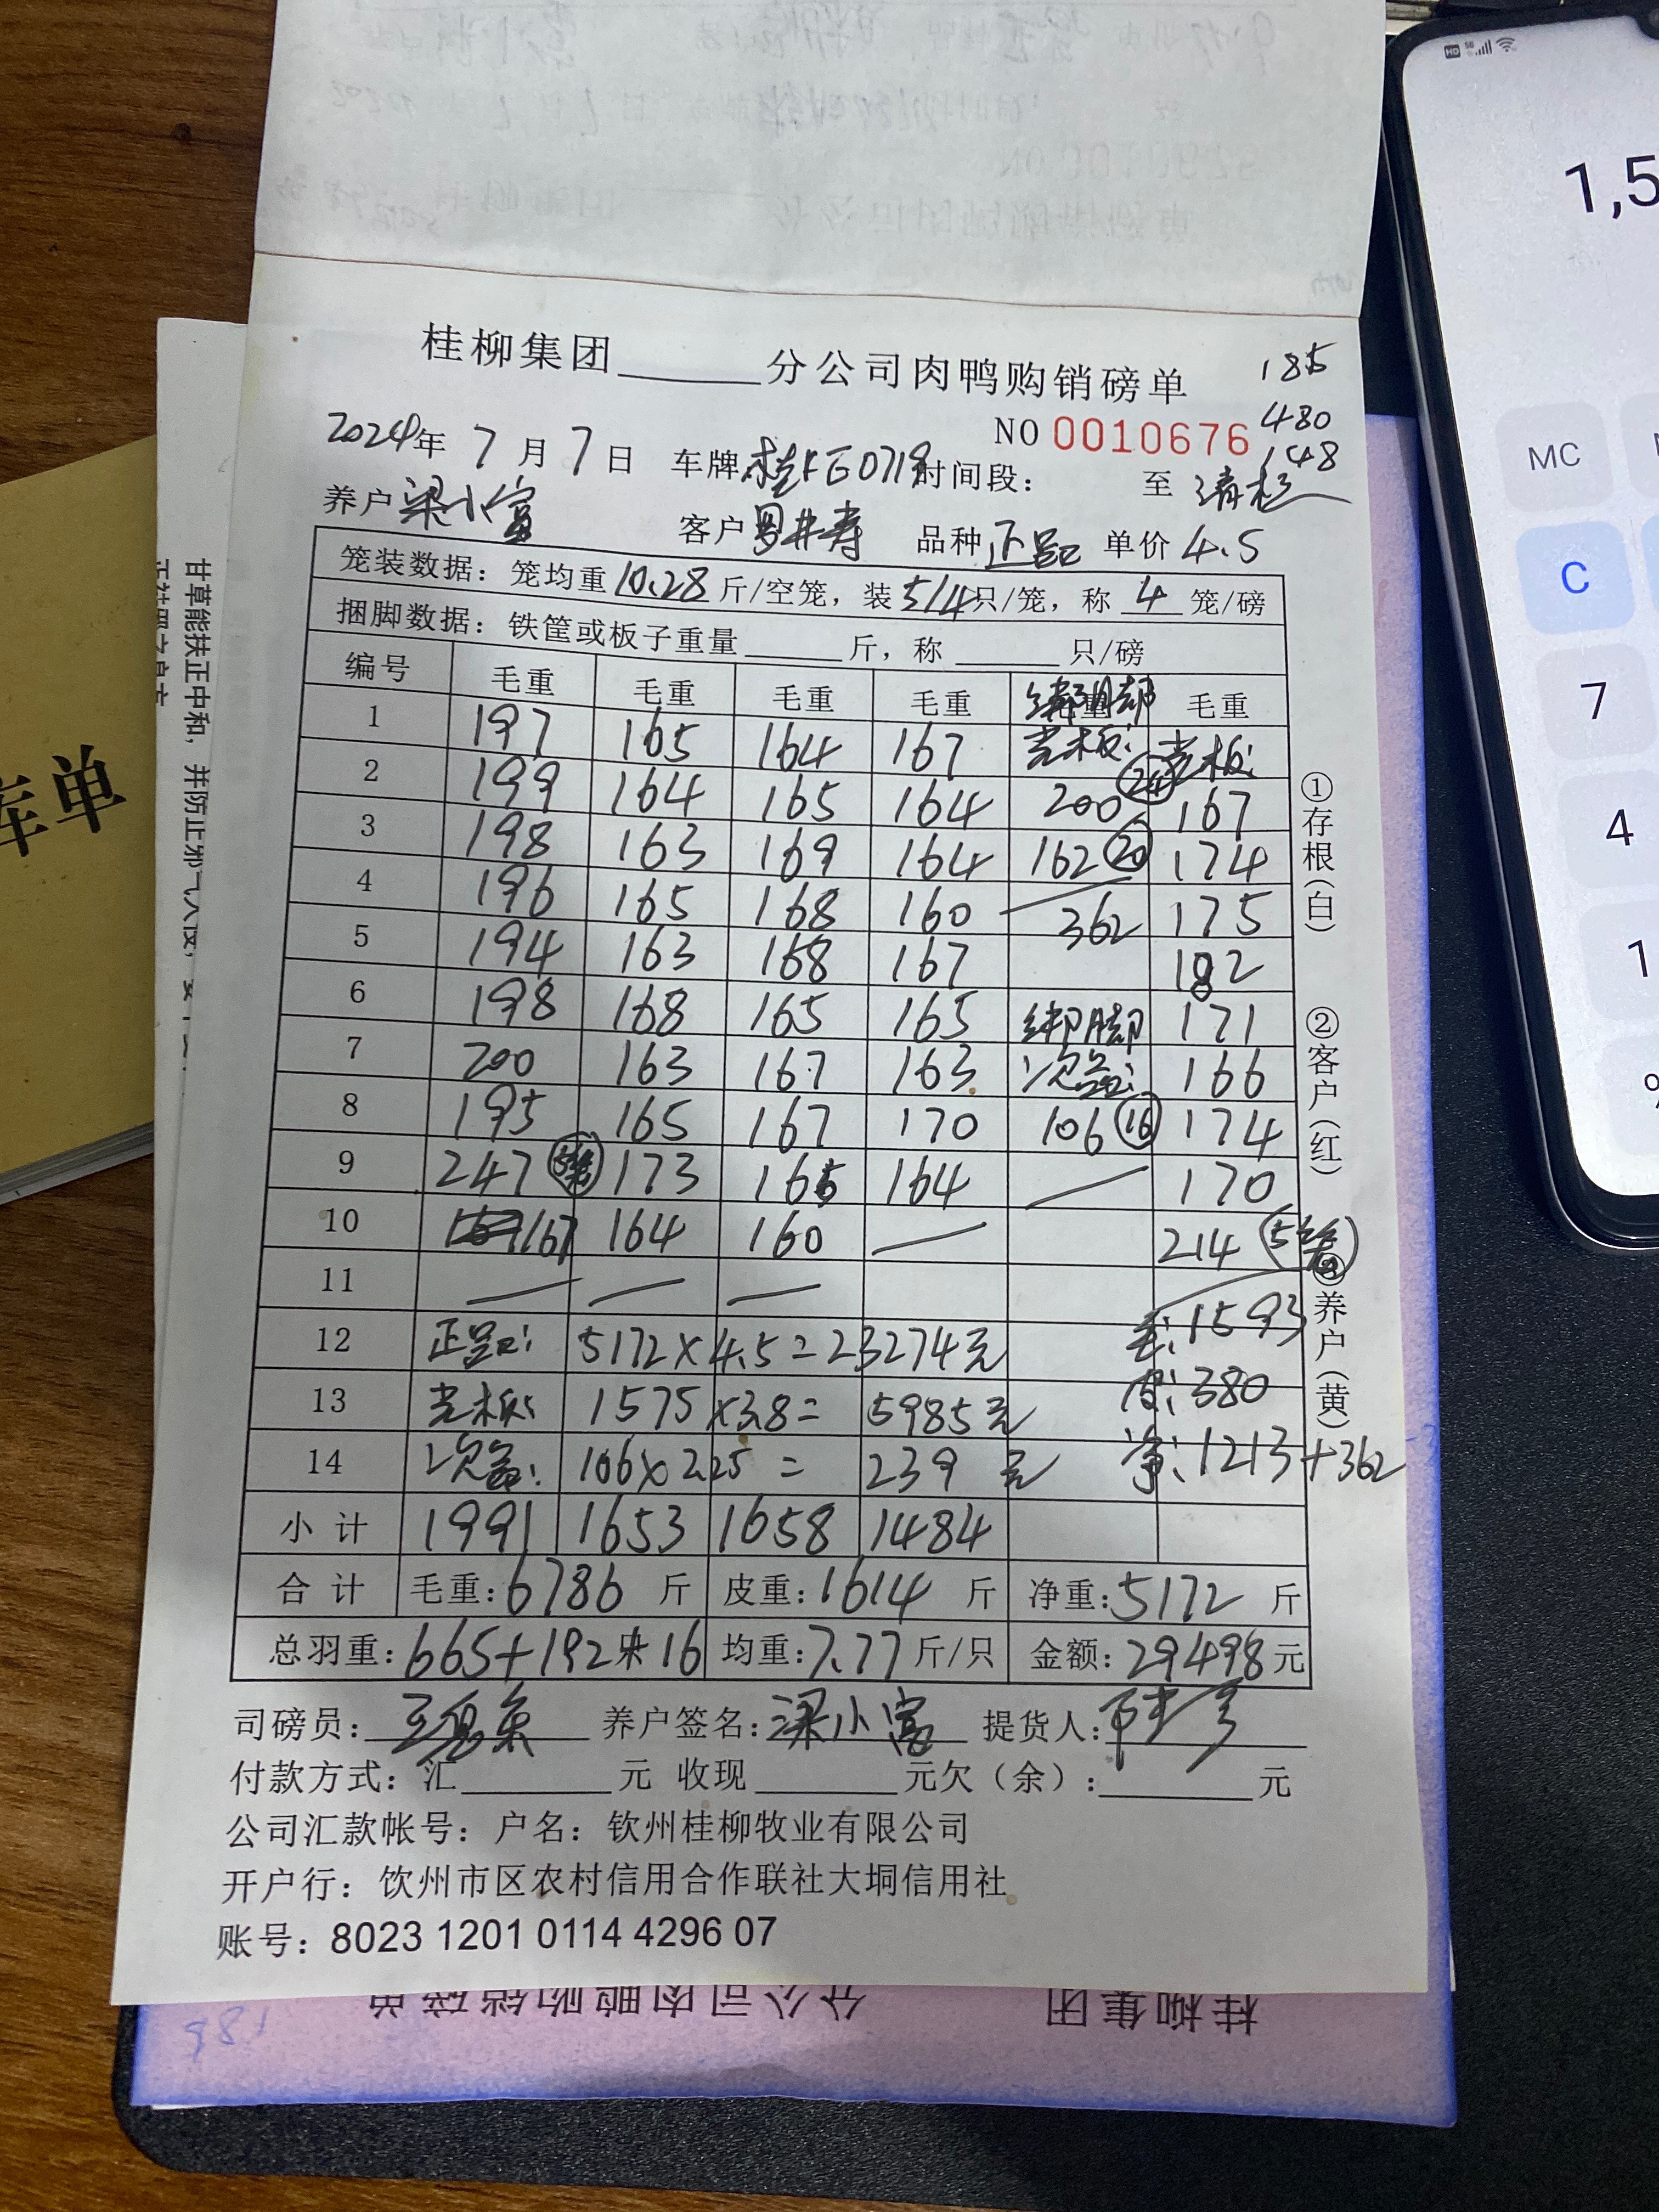 桂柳集团______分公司肉鸭购销磅单
185
480
148
NO 0010676
2024年 7 月 7 日 车牌 时间段: 至
养户 梁小富 客户 罗井寿 品种 正品 单价 4.5
笼装数据：笼均重 10.28 斤/空笼，装 5/4 只/笼，称 4 笼/磅
捆脚数据：铁筐或板子重量______斤，称______只/磅
编号 毛重 毛重 毛重 毛重 绑脚 毛重
1 197 165 164 167 光板: 光板:
2 199 164 165 164 200 (24) 167
3 198 163 169 164 162 (20) 174
4 196 165 168 160 362 175
5 194 163 168 167 182
6 198 168 165 165 绑脚 171
7 200 163 167 163 次品: 166
8 195 165 167 170 106 (16) 174
9 247 (5笼) 173 165 164 170
10 167 164 160 214 (5笼)
11 毛: 1593
12 正品: 5172×4.5=23274元
13 光板: 1575×3.8=5985元 皮: 380
14 次品: 106×2.25=239元 净: 1213+362
小计 1991 1653 1658 1484
合计 毛重: 6786 斤 皮重: 1614 斤 净重: 5172 斤
总羽重: 665+192+16 均重: 7.77 斤/只 金额: 29498 元
司磅员: 养户签名: 梁小富 提货人:
付款方式：汇______元 收现______元欠（余）:______元
公司汇款帐号：户名：钦州桂柳牧业有限公司
开户行：饮州市区农村信用合作联社大垌信用社
账号：8023 1201 0114 4296 07
①存根（白）
②客户（红）
③养户（黄）
库单
甘草能扶正中和，并防止邪气入侵，
1,5
MC
C
7
4
1
桂柳集团 分公司肉鸭购销磅单
185